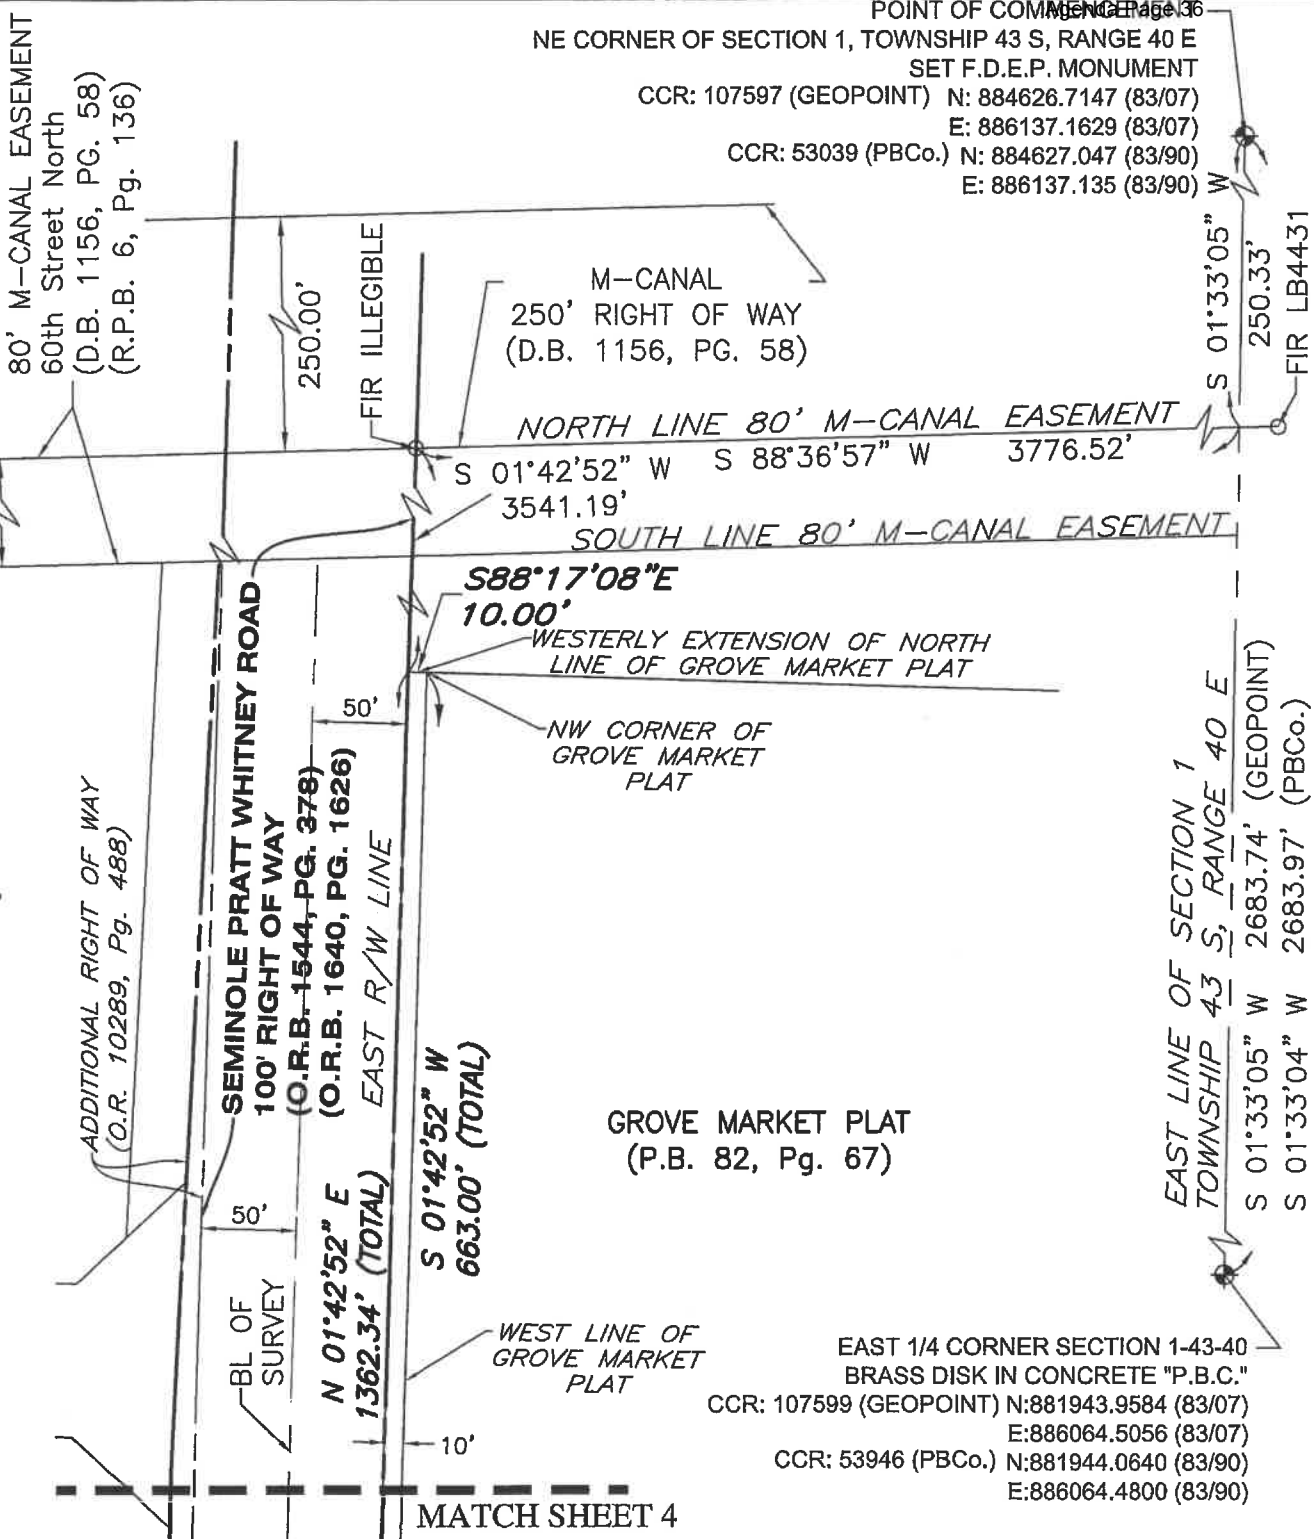 Agenda Page 36
POINT OF COMMENCEMENT
NE CORNER OF SECTION 1, TOWNSHIP 43 S, RANGE 40 E
SET F.D.E.P. MONUMENT
CCR: 107597 (GEOPOINT) N: 884626.7147 (83/07)
E: 886137.1629 (83/07)
CCR: 53039 (PBCo.) N: 884627.047 (83/90)
E: 886137.135 (83/90)
80' M-CANAL EASEMENT
60th Street North
(D.B. 1156, PG. 58)
(R.P.B. 6, Pg. 136)
250.00'
FIR ILLEGIBLE
M-CANAL
250' RIGHT OF WAY
(D.B. 1156, PG. 58)
S 01°33'05" W
250.33'
FIR LB4431
NORTH LINE 80' M-CANAL EASEMENT
S 88°36'57" W 3776.52'
S 01°42'52" W
3541.19'
SOUTH LINE 80' M-CANAL EASEMENT
S88°17'08"E
10.00'
WESTERLY EXTENSION OF NORTH
LINE OF GROVE MARKET PLAT
50'
NW CORNER OF
GROVE MARKET
PLAT
ADDITIONAL RIGHT OF WAY
(O.R. 10289, Pg. 488)
SEMINOLE PRATT WHITNEY ROAD
100' RIGHT OF WAY
(O.R.B. 1544, PG. 378)
(O.R.B. 1640, PG. 1626)
EAST R/W LINE
EAST LINE OF SECTION 1
TOWNSHIP 43 S, RANGE 40 E
S 01°33'05" W 2683.74' (GEOPOINT)
S 01°33'04" W 2683.97' (PBCo.)
GROVE MARKET PLAT
(P.B. 82, Pg. 67)
50'
N 01°42'52" E
1362.34' (TOTAL)
S 01°42'52" W
663.00' (TOTAL)
BL OF
SURVEY
WEST LINE OF
GROVE MARKET
PLAT
10'
EAST 1/4 CORNER SECTION 1-43-40
BRASS DISK IN CONCRETE "P.B.C."
CCR: 107599 (GEOPOINT) N:881943.9584 (83/07)
E:886064.5056 (83/07)
CCR: 53946 (PBCo.) N:881944.0640 (83/90)
E:886064.4800 (83/90)
MATCH SHEET 4